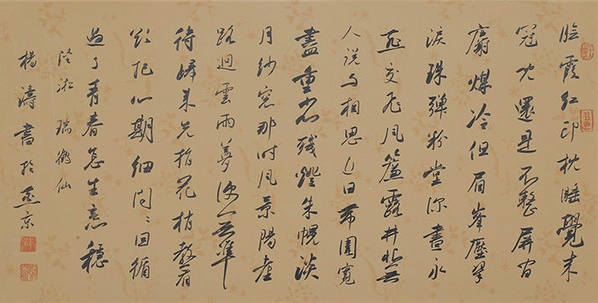 臉霞紅印枕睡覺来
冠児還是不整屏间
麝煤冷但眉峯壓翠
淚珠彈粉堂深晝永
燕交飛風簾露井恨無
人説与相思近日帶圍寬
盡重省残燈朱幌淡
月紗窓那时風景陽臺
路迥雲雨夢便無準
待歸来先指花梢教看
欲把心期細问〻因循
過了青春怎生意穩
陸淞瑞鶴仙
楊濤書於燕京